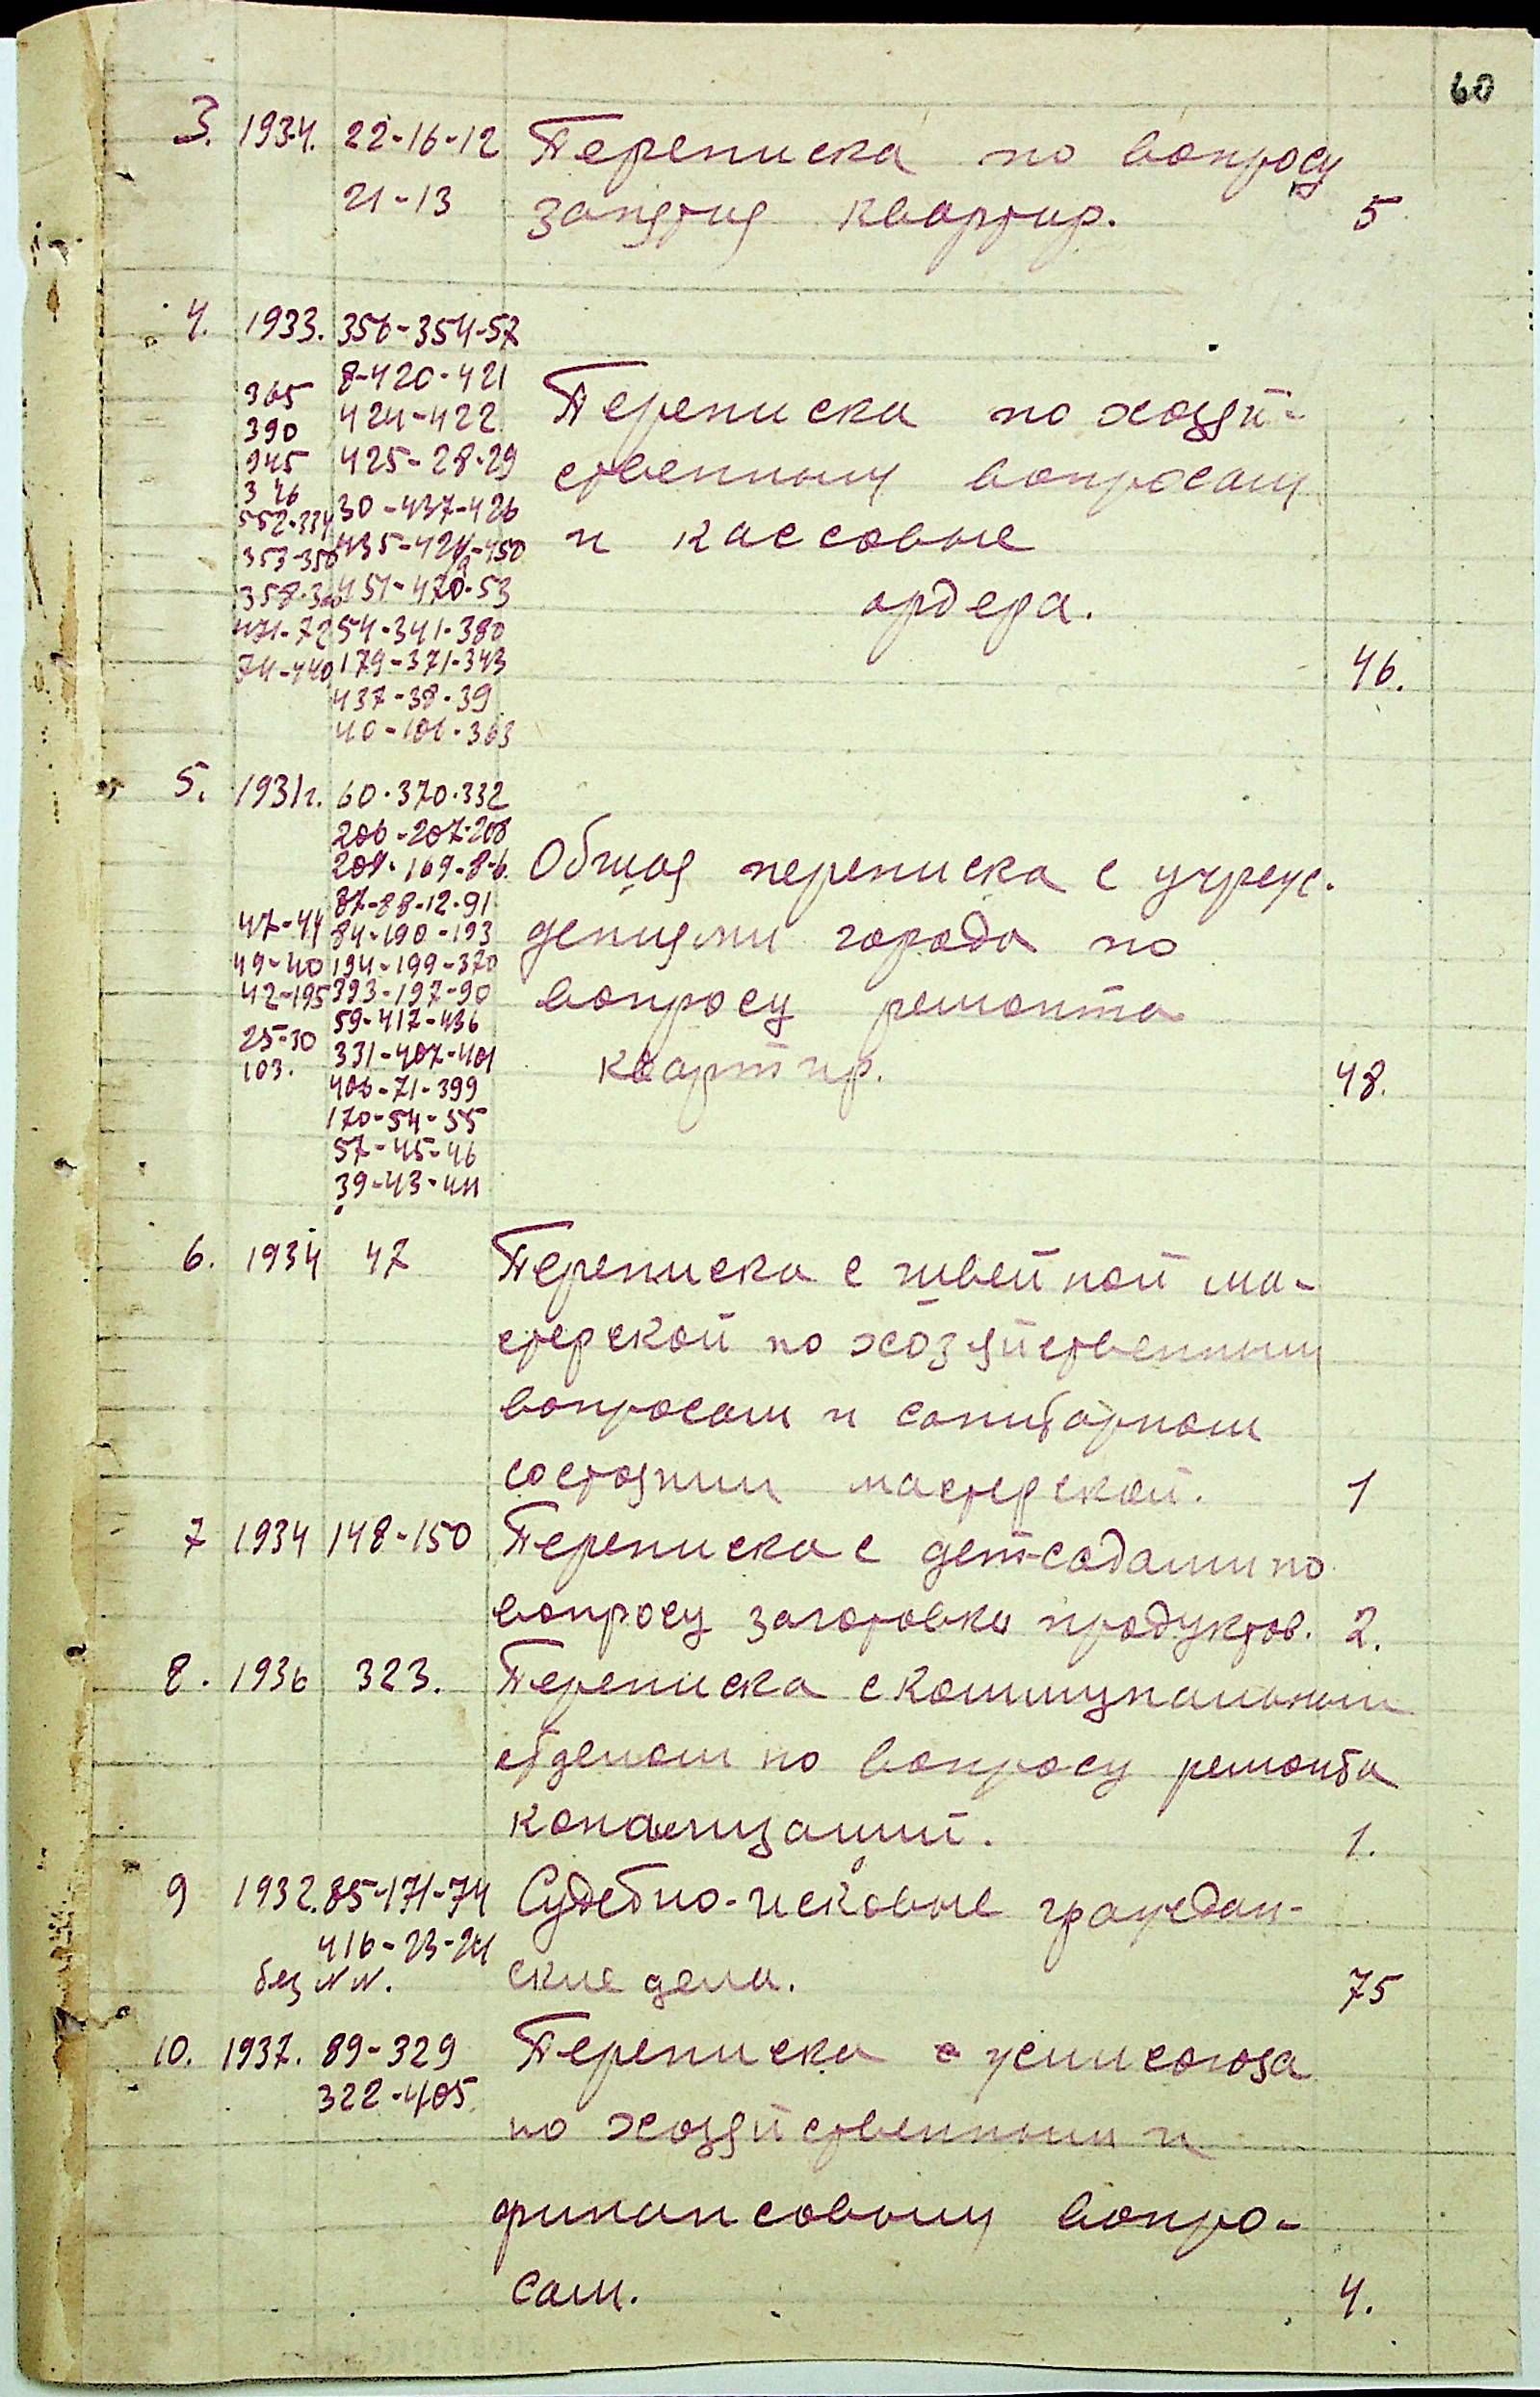 60
3. 1934. 22-16-12 Переписка по вопросу
21-13 занятия квартир. 5
4. 1933. 356-354-57
8-420-421
365 424-422 Переписка по хозяй-
390
345 425-28-29 ственным вопросам
346 30-437-426 и кассовые
552-334
353-350 435-424-450
358-360 451-470-53 ордера.
471-72 54-341-380
74-440 179-371-343 46.
437-38-39
40-106-363
5. 1931г. 60-370-332
206-207-208
209-169-8-6 Общая переписка с учреж-
87-88-12-91
47-44 84-190-193 дениями города по
49-40 194-199-370
42-195 393-197-90 вопросу ремонта
59-417-436
25-30 331-407-401 квартир. 48.
103. 406-71-399
170-54-55
57-45-46
39-43-411
6. 1934 47 Переписка с швейной ма-
стерской по хозяйственным
вопросам и санитарном
состоянии мастерской. 1
7 1934 148-150 Переписка с детсадами по
вопросу заготовки продуктов. 2.
8. 1936 323. Переписка с коммунальным
отделом по вопросу ремонта
канализаций. 1.
9 1932. 85-171-74 Судебно-исковые граждан-
416-23-24
без NN. ские дела. 75
10. 1937. 89-329 Переписка с усписоюза
322-405
по хозяйственным и
финансовым вопро-
сам. 4.